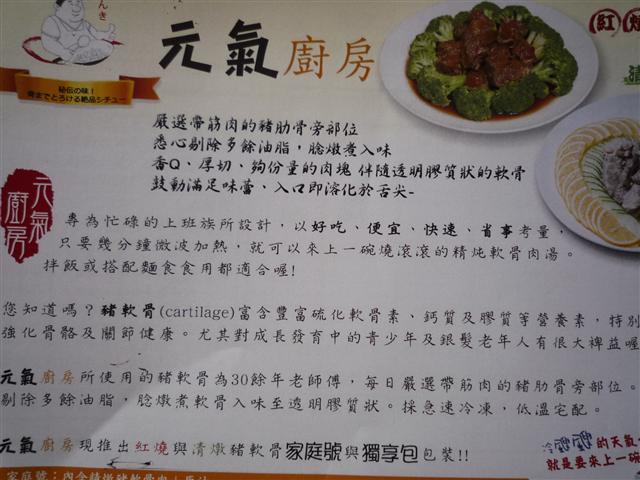 んき
元氣廚房
紅燒
清
秘伝の味！
骨までとろける絶品シチュー
嚴選帶筋肉的豬肋骨旁部位
悉心剔除多餘油脂，脍燉煮入味
香Q、厚切、夠份量的肉塊 伴隨透明膠質狀的軟骨
鼓動滿足味蕾、入口即溶化於舌尖-
元氣廚房
專為忙碌的上班族所設計，以好吃、便宜、快速、省事考量，
只要幾分鐘微波加熱，就可以來上一碗燒滾滾的精炖軟骨肉湯。
拌飯或搭配麵食食用都適合喔!
您知道嗎？豬軟骨(cartilage)富含豐富硫化軟骨素、鈣質及膠質等營養素，特別
強化骨骼及關節健康。尤其對成長發育中的青少年及銀髮老年人有很大裨益喔
元氣廚房所使用的豬軟骨為30餘年老師傅，每日嚴選帶筋肉的豬肋骨旁部位。
剔除多餘油脂，脍燉煮軟骨入味至透明膠質狀。採急速冷凍，低溫宅配。
元氣廚房現推出紅燒與清燉豬軟骨家庭號與獨享包包裝!!
冷颼颼的天氣
就是要來上一碗